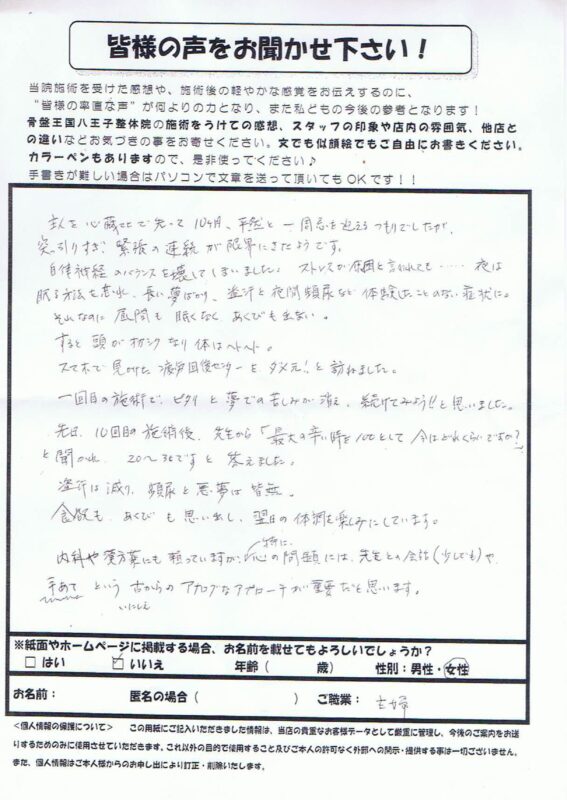 皆様の声をお聞かせ下さい！
当院施術を受けた感想や、施術後の軽やかな感覚をお伝えするのに、
“皆様の率直な声”が何よりの力となり、また私どもの今後の参考となります！
骨盤王国八王子整体院の施術をうけての感想、スタッフの印象や店内の雰囲気、他店と
の違いなどお気づきの事をお寄せください。文でも似顔絵でもご自由にお書きください。
カラーペンもありますので、是非使ってください♪
手書きが難しい場合はパソコンで文章を送って頂いてもOKです！！
主人を心臓死で失って10ヶ月、平然と一周忌を迎えるつもりでしたが、
突っ引りすぎ 緊張の連続が限界にきたようです。
自律神経のバランスを壊してしまいました。ストレスが原因と言われても…… 夜は
眠る方法を忘れ、長い夢ばかり、盗汗と夜間頻尿など 体験したことのない症状に。
それなのに昼間も眠くなく、あくびも出ない。
すると頭がオカシクなり体はヘトヘト。
スマホで見つけた疲労回復センターを ダメ元！と訪ねました。
一回目の施術で、ピタリと夢での苦しみが消え、続けてみよう!!と思いました。
先日、10回目の施術後、先生から「最大の辛い時を100として 今はどれくらいですか？」
と聞かれ 20～30ですと 答えました。
盗汗は減り、頻尿と悪夢は皆無。
食欲も、あくびも思い出し、翌日の体調を楽しみにしています。
内科や漢方薬にも頼っていますが、特に、心の問題には、先生との会話（少しでも）や
手あてという 古からの アナログなアプローチが重要だと思います。
いにしえ
※紙面やホームページに掲載する場合、お名前を載せてもよろしいでしょうか？
□ はい ☑ いいえ 年齢（ 歳） 性別：男性・女性
お名前： 匿名の場合（ ） ご職業： 主婦
＜個人情報の保護について＞ この用紙にご記入いただきました情報は、当店の貴重なお客様データとして厳重に管理し、今後のご案内をお送
りするためのみに使用させていただきます。これ以外の目的で使用すること及びご本人の許可なく外部への開示・提供する事は一切ございません。
また、個人情報はご本人様からのお申し出により訂正・削除いたします。